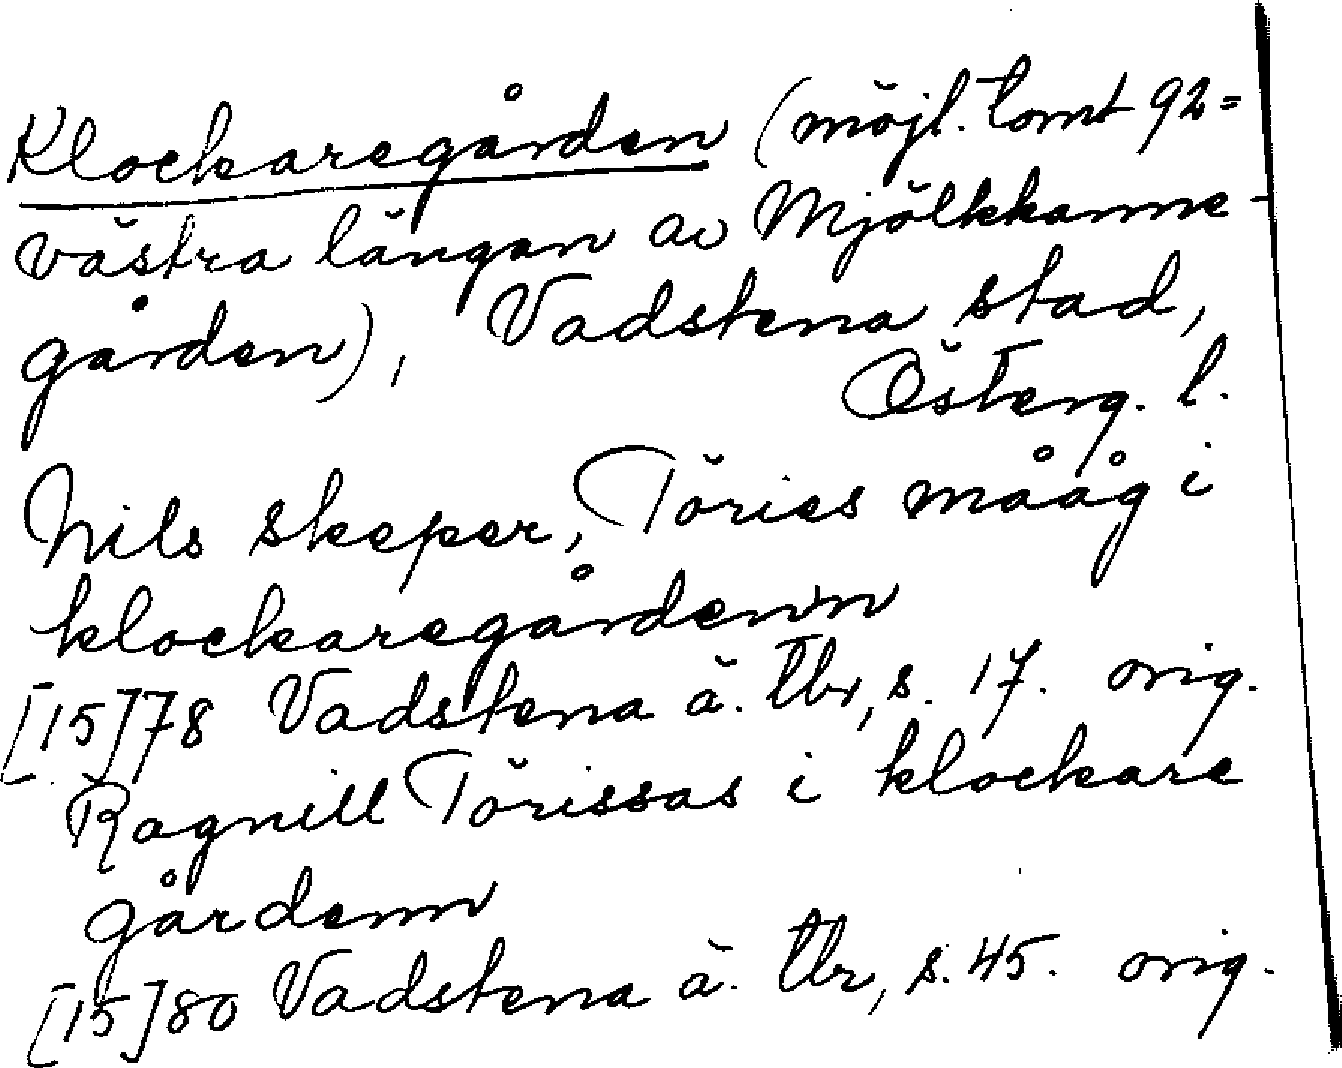 Klockaregården (möjl. tomt 92=
västra längan av Mjölkkanne-
gården), Vadstena stad,
Österg. l.
Nils skeper, Töries mååg i
klockaregårdenn
[15]78 Vadstena ä. tbr, s. 17. orig.
Ragnill Törissas i klockare
gårdenn
[15]80 Vadstena ä. tbr, s. 45. orig.